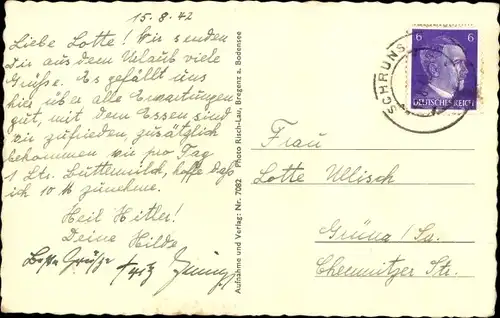 15.8.42
Liebe Lotte! Wir senden
Dir aus dem Urlaub viele
Grüße. Es gefällt uns
hier über alle Erwartungen
gut, mit dem Essen sind
wir zufrieden, zusätzlich
bekommen wir pro Tag
1 Ltr. Buttermilch, hoffe daß
ich 10 zunehme.
Heil Hitler!
Deine Hilde
Beste Grüße Fritz
Aufnahme und Verlag: Nr. 7082 Photo Risch-Lau, Bregenz a. Bodensee
SCHRUNS
6 6
DEUTSCHES REICH
Frau
Lotte Ullisch
Grüna / Sa.
Chemnitzer Str.